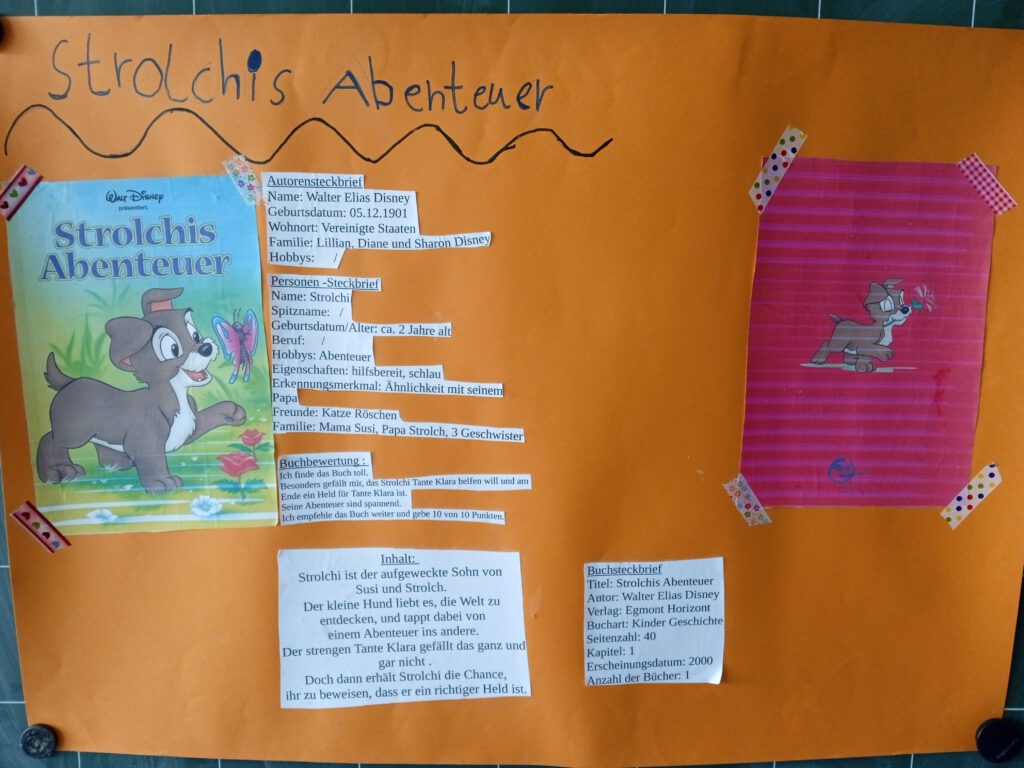 Strolchis Abenteuer
WALT DISNEY
präsentiert:
Strolchis
Abenteuer
Autorensteckbrief
Name: Walter Elias Disney
Geburtsdatum: 05.12.1901
Wohnort: Vereinigte Staaten
Familie: Lillian, Diane und Sharon Disney
Hobbys: /
Personen -Steckbrief
Name: Strolchi
Spitzname: /
Geburtsdatum/Alter: ca. 2 Jahre alt
Beruf: /
Hobbys: Abenteuer
Eigenschaften: hilfsbereit, schlau
Erkennungsmerkmal: Ähnlichkeit mit seinem
Papa
Freunde: Katze Röschen
Familie: Mama Susi, Papa Strolch, 3 Geschwister
Buchbewertung :
Ich finde das Buch toll.
Besonders gefällt mir, das Strolchi Tante Klara helfen will und am
Ende ein Held für Tante Klara ist.
Seine Abenteuer sind spannend.
Ich empfehle das Buch weiter und gebe 10 von 10 Punkten.
Inhalt:
Strolchi ist der aufgeweckte Sohn von
Susi und Strolch.
Der kleine Hund liebt es, die Welt zu
entdecken, und tappt dabei von
einem Abenteuer ins andere.
Der strengen Tante Klara gefällt das ganz und
gar nicht .
Doch dann erhält Strolchi die Chance,
ihr zu beweisen, dass er ein richtiger Held ist.
Buchsteckbrief
Titel: Strolchis Abenteuer
Autor: Walter Elias Disney
Verlag: Egmont Horizont
Buchart: Kinder Geschichte
Seitenzahl: 40
Kapitel: 1
Erscheinungsdatum: 2000
Anzahl der Bücher: 1